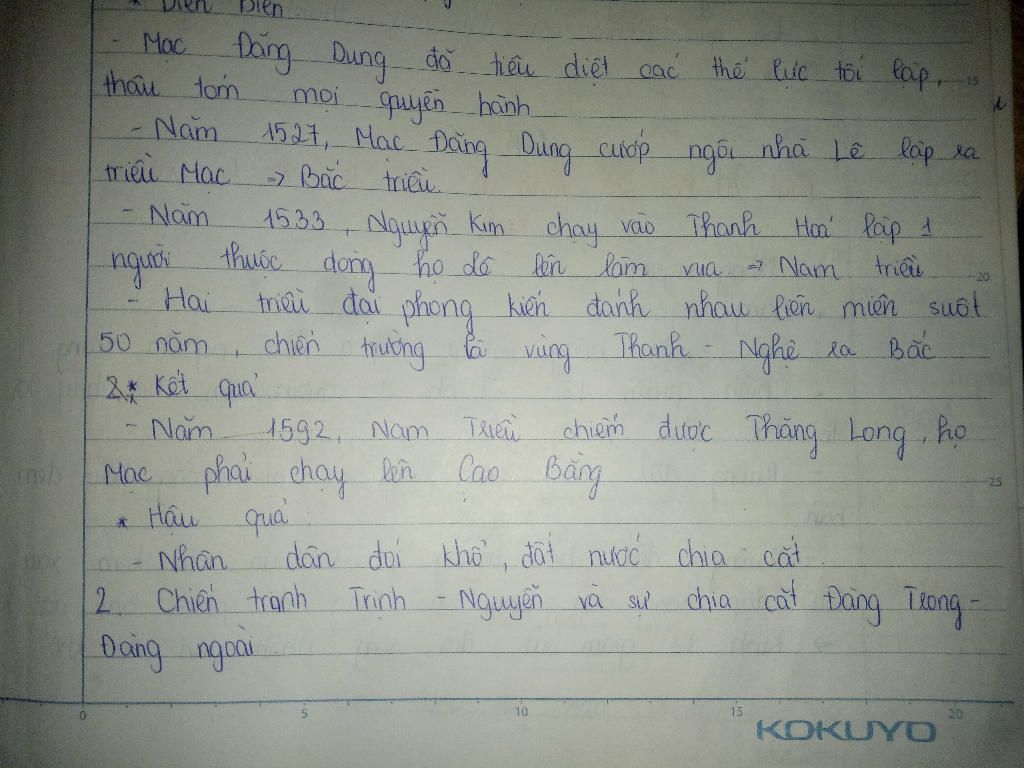 * Diễn Biến
- Mạc Đăng Dung đã tiêu diệt các thế lực tối lập, 15
thâu tóm mọi quyền hành
- Năm 1527, Mạc Đăng Dung cướp ngôi nhà Lê lập ra
triều Mạc => Bắc triều.
- Năm 1533, Nguyễn Kim chạy vào Thanh Hoá lập 1
người thuộc dòng họ Lê lên làm vua => Nam triều 20
- Hai triều đại phong kiến đánh nhau liên miên suốt
50 năm, chiến trường là vùng Thanh - Nghệ ra Bắc
* Kết quả
- Năm 1592, Nam Triều chiếm được Thăng Long, họ
Mạc phải chạy lên Cao Bằng 25
* Hậu quả:
- Nhân dân đói khổ, đất nước chia cắt.
2. Chiến tranh Trịnh - Nguyễn và sự chia cắt Đàng Trong -
Đàng ngoài.
0 5 10 15 20
KOKUYO